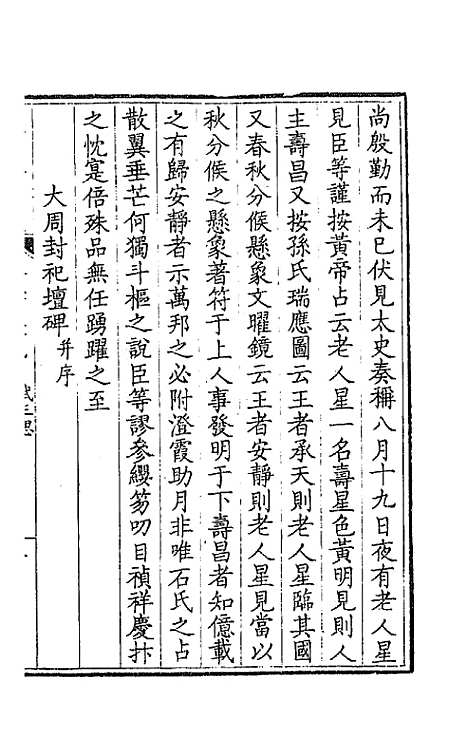 尚殷勤而未已伏見太史奏稱八月十九日夜有老人星
見臣等謹按黃帝占云老人星一名壽星色黃明見則人
主壽昌又按孫氏瑞應圖云王者承天則老人星臨其國
又春秋分候懸象文曜鏡云王者安靜則老人星見當以
秋分候之懸象著符于上人事發明于下壽昌者知億載
之有歸安靜者示萬邦之必附澄霞助月非唯石氏之占
散翼垂芒何獨斗樞之說臣等謬參纓笏叨目禎祥慶抃
之忱寔倍殊品無任踴躍之至
大周封祀壇碑并序
武三思